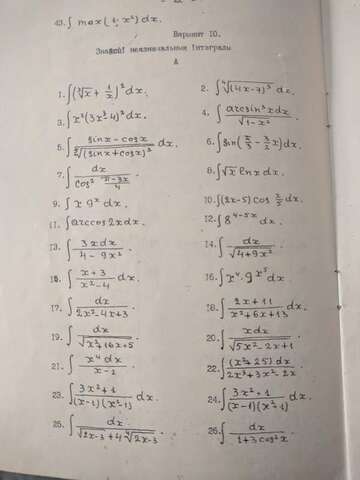 43. ∫ max(1, x²) dx.
Вариант 10.
Знайти неазначальныя інтэгралы
A
1. ∫(∛x + 1/x)² dx.
2. ∫ ⁴√(4x-7)³ dx.
3. ∫ x²(3x³-4)² dx.
4. ∫ arcsin³x dx / √(1-x²).
5. ∫ (sinx - cosx) / ⁵√(sinx + cosx)³ dx.
6. ∫ sin(π/3 - 3/2 x) dx.
7. ∫ dx / cos² (π-3x)/4.
8. ∫ √x lnx dx.
9. ∫ x 9ˣ dx.
10. ∫(2x-5) cos 3/2 x dx.
11. ∫ arccos 2x dx.
12. ∫ 8^(4-5x) dx.
13. ∫ 3x dx / (4 - 9x²)
14. ∫ dx / √(4+9x²).
15. ∫ (x+3) / (x²-4) dx.
16. ∫ x⁴ · 9^(x⁵) dx.
17. ∫ dx / (2x²-4x+3)
18. ∫ (2x+11) / (x²+6x+13) dx.
19. ∫ dx / √(x²+16x+5)
20. ∫ x dx / √(5x²-2x+1)
21. ∫ x⁴ dx / (x-2)
22. ∫ (x²+25) dx / (2x³+3x²-2x)
23. ∫ (3x²+1) / (x-1)(x²-1) dx.
24. ∫ (3x²+1) / (x-1)(x²+1) dx.
25. ∫ dx / (√(2x-3) + 4 ⁴√(2x-3)
26. ∫ dx / (1+3cos²x)